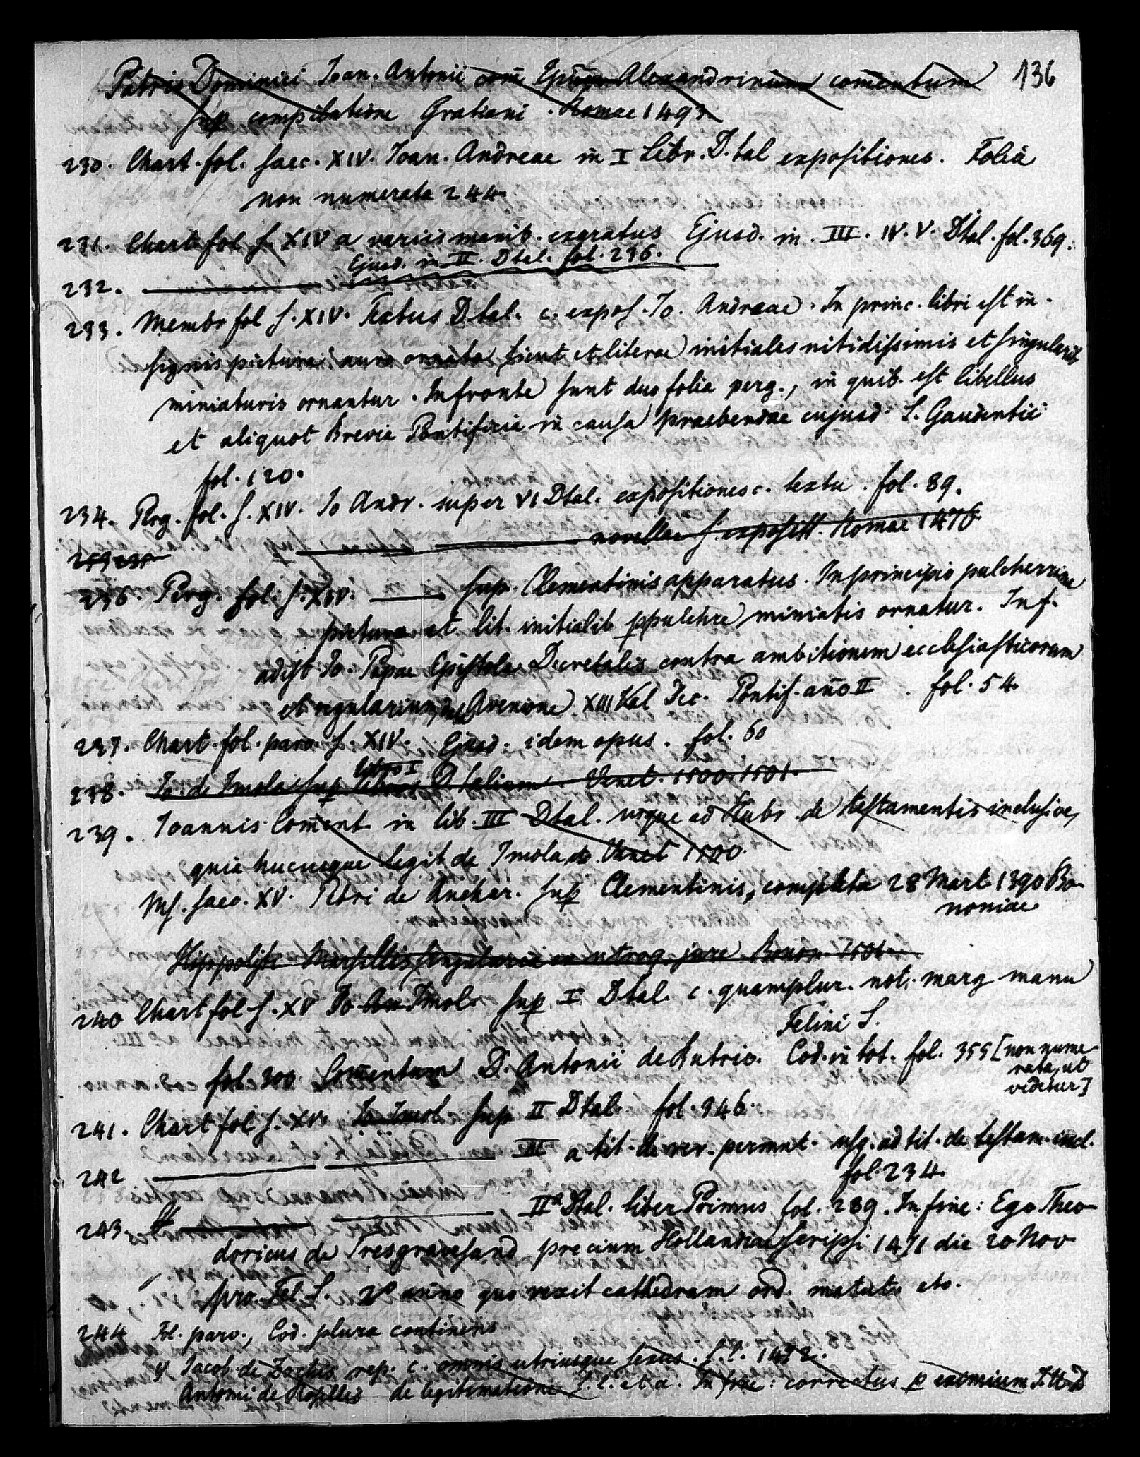 Patris Dominici Joan. Antonii com Epum Alexandrinum comentum 136
sup compilatione Gratiani. Romae 1493
230. Chart. fol. saec. XIV. Joan. Andreae in I Libr. D.tal expositiones. Folia
non numerata 244.
231. Chart fol. s. XIV a variis manib. exaratus Ejusd. in III. IV. V. Dtal. fol. 369.
Ejusd. in II. Dtal. fol. 236.
232.
233. Membr fol s. XIV. Textus Dtal. c. expos. Jo. Andreae. In princ. libri est in-
signis pictura auro ornata, sicut et literae initiales nitidissimis et singularib
miniaturis ornantur. In fronte sunt duo folia perg., in quib. est libellus
et aliquot Brevia Pontificia in causa praebendae cujusd. S. Gaudentii
fol. 120.
234. Prg. fol. s. XIV. Jo Andr. super VI Dtal. expositiones c. textu. fol. 89.
novellae s. expositt. Romae 1476
236 Perg. fol. s. XIV. sup. Clementinis apparatus. In principio pulcherrima
pictura et lit. initialib perpulchre miniatis ornatur. In f.
adest Jo. Papae Epistola Decretalis contra ambitionem ecclesiasticorum
et regularium, Avenione XIII Kal Dec. Pontif. año II. fol. 54
237. Chart. fol. parv. s XIV. Ejusd. idem opus. fol. 60
libro I
238. Jo de Imola sup Dtalium Venet. 1500. 1501.
239. Joannis Coment in lib. III Dtal. usque ad Rubr. de testamentis inclusive,
quia hucusque legit de Imola do Venet 1500
Ms. saec. XV. Petri de Anchar. sup Clementinis, completa 28 Mart 1390 Bo-
noniae
Hippoliti Marsillis singularia in utroq. jure. Bonon 1501.
240 Chart fol s. XV Jo An Imol. sup I Dtal. c. quamplur. not. marg manu
Felini S.
fol. 300 Comentum D. Antonii de Butrio. Cod. in tot. fol. 355 [non nume-
rata, ut
videtur]
241. Chart fol s. XV. Jo Imol. sup II Dtal. fol 346.
242 III a tit. de rer. permut. usq. ad tit. de testam. incl.
fol. 234
243. II Dtal. liber Primus fol. 289. In fine: Ego Theo-
doricus de Tresgravesand precium Hollandiae scripsi 1471 die 20 Nov
pro Fel S. 2º anno quo rexit cathedram ord. mutata etc.
244 Fol. parv., Cod. plura continens
Jacob. de Zochis rep. c. omnis utriusque sexus. s. l. 1472.
Antonii de Rosellis de legitimatione s. l. et a. In fine: correctus p eximium I.U.D